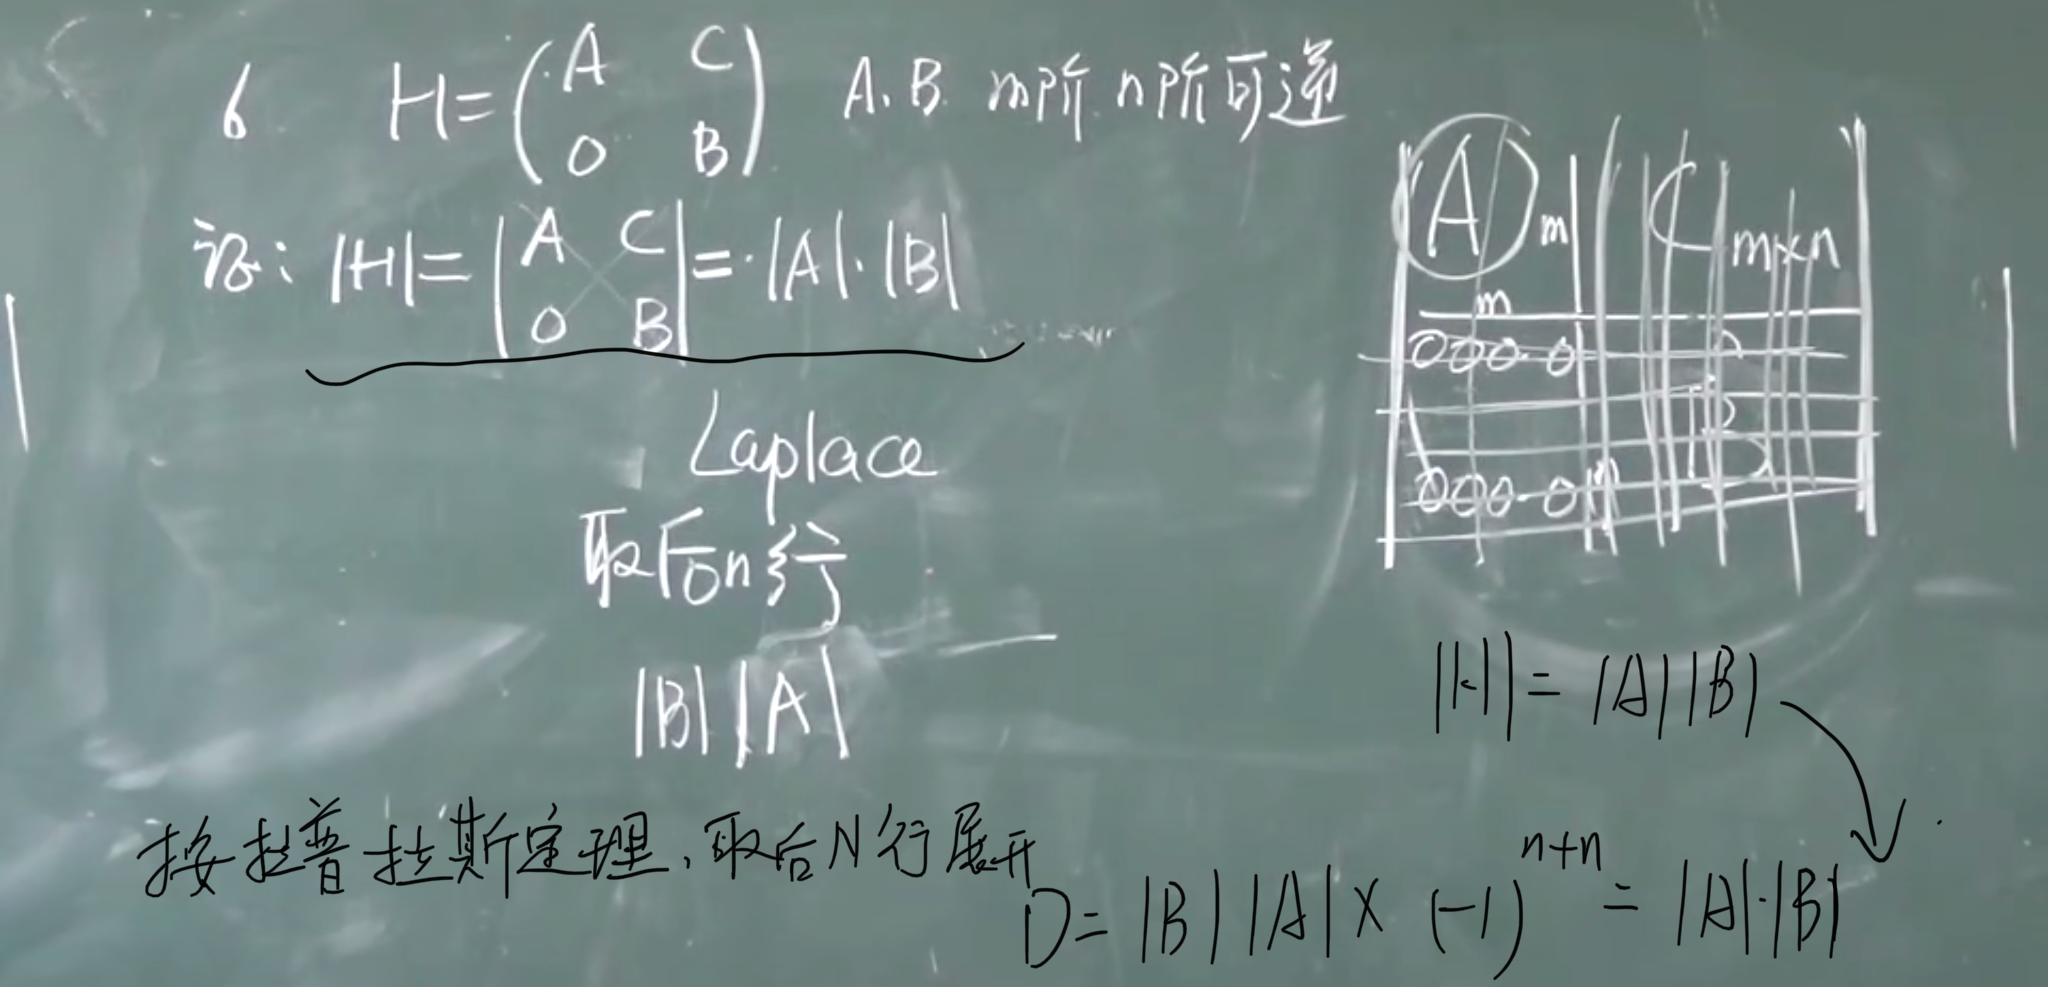 6 H=(A C
0 B) A.B m阶 n阶可逆
证: |H|=|A C
0 B|=·|A|·|B|
Laplace
取后n行
|B||A|
A m C m×n
m
000·0
B
000·0 n
|H|=|A||B|
按拉普拉斯定理,取后N行展开
D=|B||A|×(-1)^{n+n}=|A|·|B|